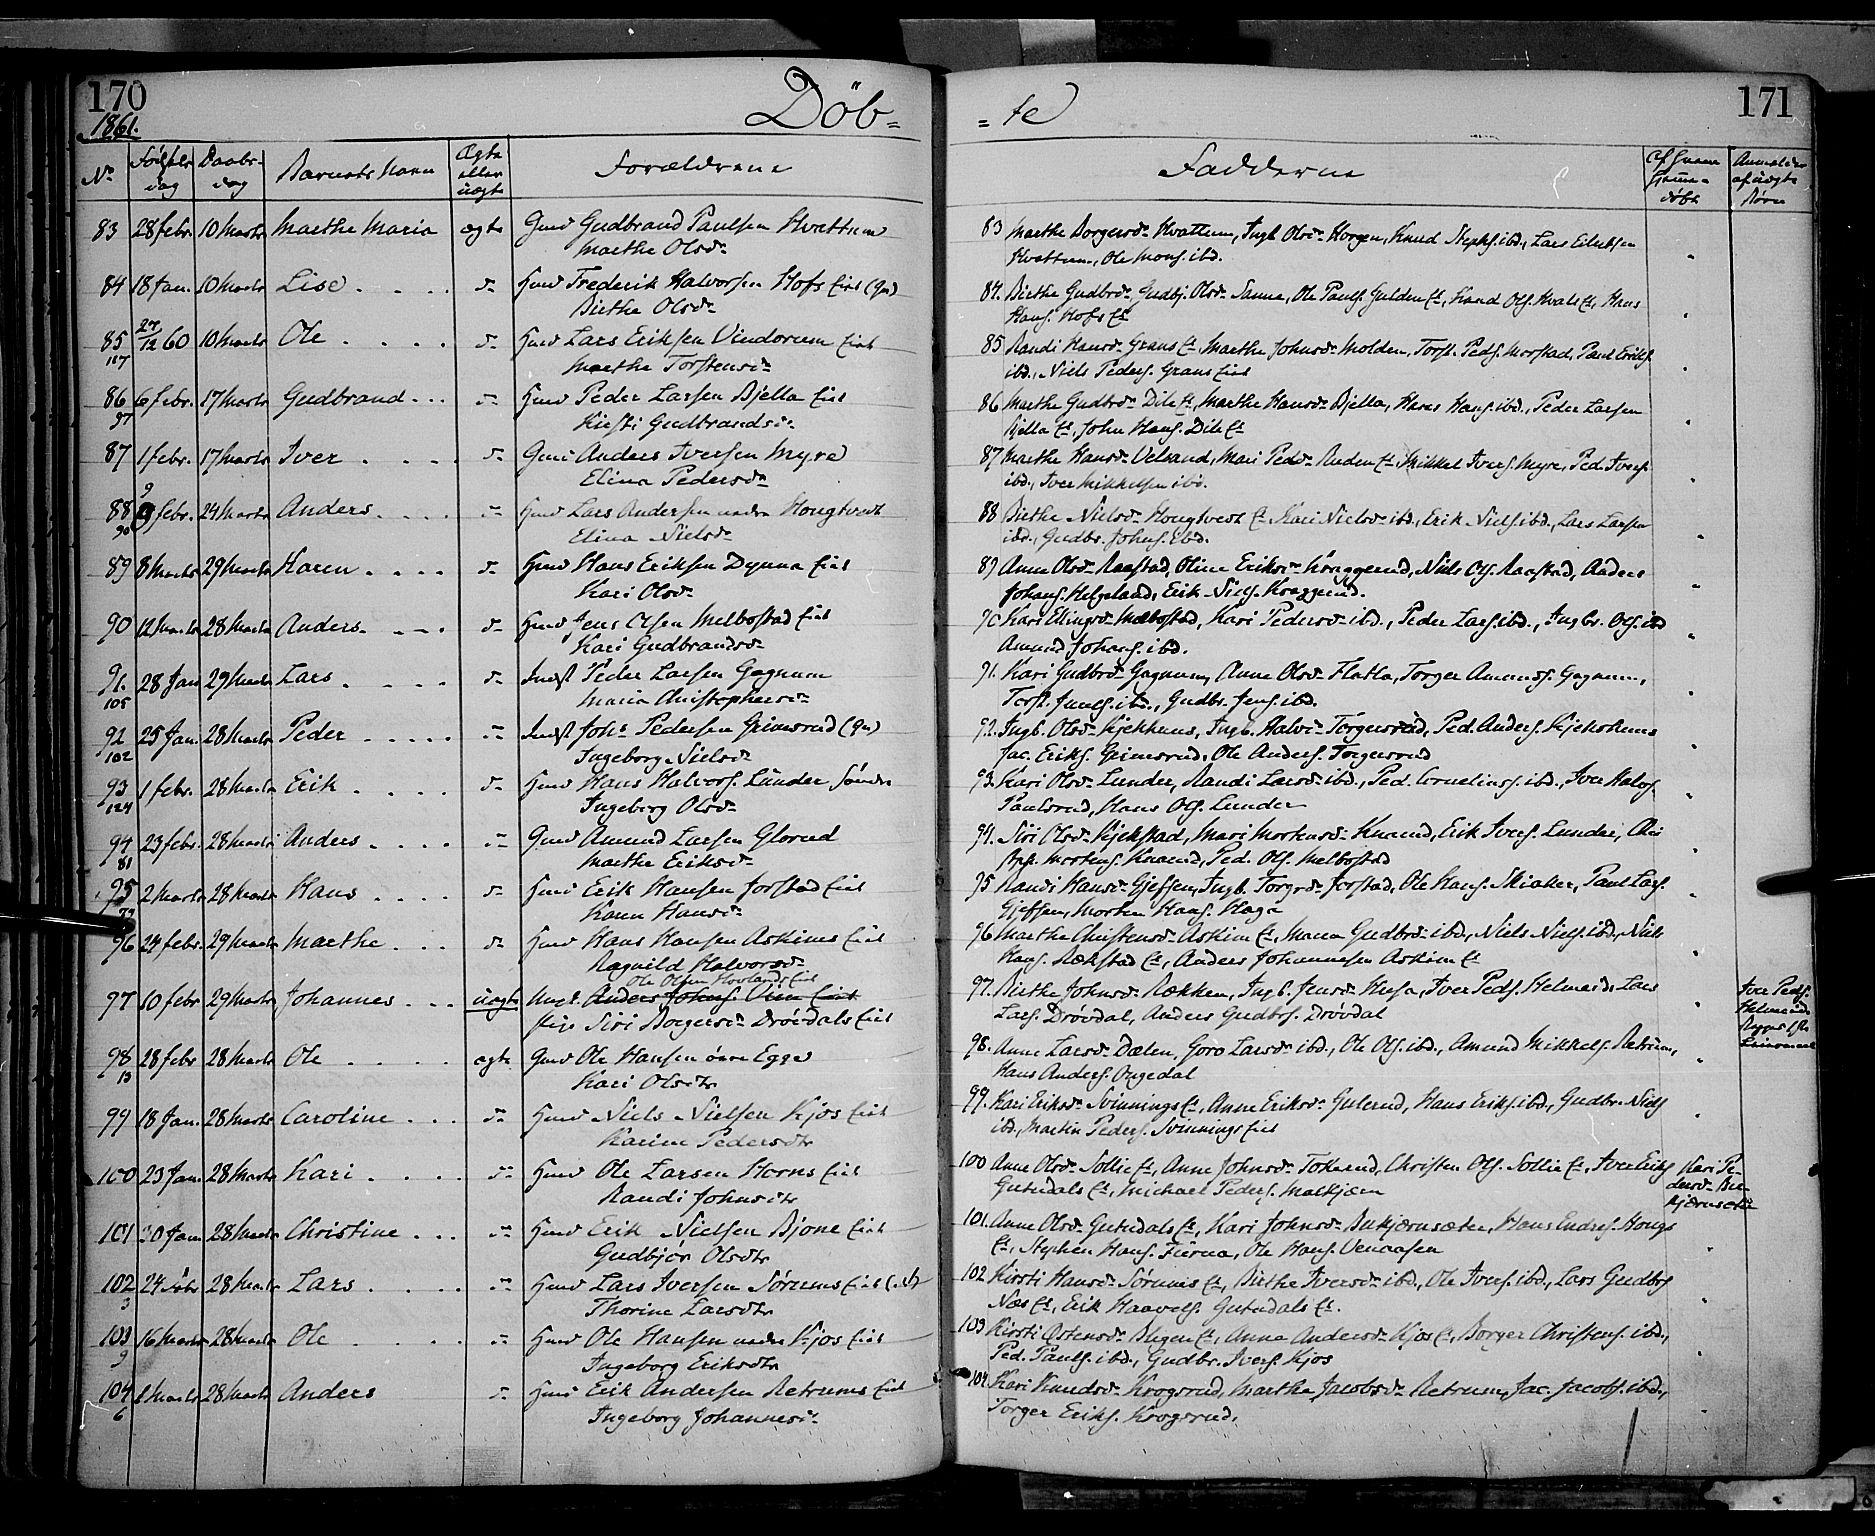 170
1861.
Döb-
No
Fødsels dag
Daabs dag
Barnets Navn
Ægte eller uægte
Forældrene
83 28 febr. 10 Marts Marthe Maria ægte Gmd Gudbrand Paulsen Hvattum
Marthe Olsd.
84 18 Jan. 10 Marts Lise . . . . d- Hmd Frederik Halvorsen Hofs Eiet (Gr)
Birthe Olsd.
85 27/12 60 10 Marts Ole . . . . d- Hmd Lars Eriksen Vindorum Eiet
107 Marthe Torstensd.
86 6 febr. 17 Marts Gudbrand . . . d- Hmd Peder Larsen Bjella Eiet
97 Kirsti Gudbrandsd.
87 1 febr. 17 Marts Iver . . . . d- Gmd Anders Iversen Myre
Elina Pedersd.
88 9 febr. 24 Marts Anders . . . . d- Hmd Lars Andersen nedre Hougtvedt
90 Elina Nielsd.
89 8 Marts 29 Marts Karen . . . . d- Hmd Hans Eriksen Dynna Eiet
Kari Olsd.
90 12 Marts 28 Marts Anders . . . . d- Hmd Jens Olsen Melbostad Eiet
Kari Gudbrandsd.
91. 28 Jan 29 Marts Lars . . . . d- Indst Peder Larsen Gagnum
105 Maria Christophersd.
92 25 Jan. 28 Marts Peder . . . . . d- Indst Johs Pedersen Grimsrud (Gr)
102 Ingeborg Nielsd.
93 1 febr. 28 Marts Erik . . . . d- Hmd Hans Halvors. Lunder Søndre
124 Ingeborg Olsd.
94 23 febr. 28 Marts Anders . . . . d- Gmd Amund Larsen Glorud
81 Marthe Eriksd.
95 2 Marts 28 Marts Hans . . . . d- Hmd Erik Hansen Jorstad Eiet
79 Karen Hansd.
96 24 febr. 29 Marts Marthe . . . d- Hmd Hans Hansen Askims Eiet
Ragnild Halvorsd.
Ole Olsen Hovlands Eiet
97 10 febr 29 Marts Johannes . . . uægte Ungk. Anders Johns. Eiet
Pige Siri Borgersd. Drövdals Eiet
98 28 febr 28 Marts Ole . . . . ægte Gmd Ole Hansen övre Egge
13 Kari Olsdtr
99 18 Jan. 28 Marts Caroline . . . d- Hmd Niels Nielsen Kjos Eiet
Karine Pedersdtr
100 23 Jan. 28 Marts Kari . . . . d- Hmd Ole Larsen Horns Eiet
Randi Johnsdtr
101 30 Jan. 28 Marts Christine . . . d- Hmd Erik Nielsen Bjone Eiet
Gudbjör Olsdtr
102 24 28 Marts Lars . . . . d- Hmd Lars Iversen Sørums Eiet
3 Thorine Larsdtr
103 16 Marts 28 Marts Ole . . . . d- Hmd Ole Hansen nedre Kjos Eiet
9 Ingeborg Eriksdtr
104 8 Marts 28 Marts Anders d- Hmd Erik Andersen Retrums Eiet
6 Ingeborg Johannesd.
-te
171
Fadderne
83 Marthe Borgersd. Hvattum, Ingb. Olsd. Horgen, Knud Steph. ibd., Lars Eriksen
Hvattum, Ole Mons. ibd.
84. Birthe Gudbrd. Gudbj. Olsd. Sanne, Ole Pauls. Gulden Et, Knud Ols. Hvals Et, Hans
Hans. Hofs Et
85 Randi Hansd. Grans Et, Marthe Johnsd. Molden, Torst. Peds. Morstad, Paul Eriks.
ibd., Niels Peders. Grans Eiet
86 Marthe Gudbrd. Et, Marthe Hansd. Bjella, Hans Hans. ibd., Peder Larsen
Bjella Et, John Hans. Et
87 Marthe Hansd. Velsand, Mari Pedd. Et, Mikkel Ivers. Myre, Ped. Ivers.
ibd., Iver Mikkelsen ibd.
88 Birthe Nielsd. Hougtvedt Et Kari Nielsd. ibd., Erik Niels. ibd., Lars Larsen
ibd., Gudbr. Johns. ibd.
89 Anne Olsd. Raastad, Oline Eriksd. Kraggerud, Niels Ols. Raastad, Anders
Johans. Helgeland, Erik Niels. Kraggerud.
90 Kari Ellingsd. Melbostad, Kari Pedersd. ibd., Peder Lars. ibd., Ingbr. Ols. ibd
Amund Johans. ibd.
91. Kari Gudbrd. Gagnum, Anne Olsd. Flatla, Torger Amunds. Gagnum,
Torst. ibd., Gudbr. Jens. ibd.
92. Ingb. Olsd. Kjekshus, Ingb. Halvd. Torgersrud, Ped. Anders. Kjekshus
Jac. Eriks. Grimsrud, Ole Anders. Torgersrud
93. Kari Olsd. Lunder, Randi Larsd. ibd., Ped. Cornelius. ibd., Iver Halvs.
Paulsrud, Hans Ols. Lunder
94. Siri Olsd. Kjekstad, Mari Mortensd. Knarud, Erik Ivers. Lunder,
Mortens. Knarud, Ped. Ols. Melbostad
95 Randi Hansd. Gjefsen, Ingb. Torgrd. Jorstad, Ole Hans. Skiaker, Paul Lars.
Gjefsen, Morten Hans. Haga
96 Marthe Christensd. Askim Et, Maren Gudbrd. ibd., Niels Niels. ibd., Niels
Hans. Rækstad Et, Anders Johannesen Askim Et
97. Birthe Johnsd. Rækken, Ingb. Jensd. Iver Peds. Helmeid, Lars
Lars. Drövdal, Anders Gudbrs. Drövdal
98. Anne Larsd. Dælen, Goro Larsd. ibd., Ole Ols. ibd., Amund Mikkels. Retrum,
Hans Anders. Ongedal
99. Kari Eriksd. Svinnings Et, Anne Eriksd. Gulerud, Hans Eriks. ibd., Gudbr. Niels.
ibd., Martin Peders. Svinnings Eiet
100 Anne Olsd. Sollie Et, Anne Johnsd. Tokerud, Christen Ols. Sollie Et, Iver Eriks.
Gutudals Et, Michael Peders. Molkjæren
101. Anne Olsd. Gutudals Et, Kari Johnsd. Bukjærnsæter, Hans Endres. Hougs
Et, Stephen Hans. Ole Hans. Venaasen
102 Kirsti Hansd. Sørums Et, Birthe Iversd. ibd., Ole Ivers. ibd., Lars Gudbrs.
Næs Et, Erik Haavels. Gutudals Et.
103 Kirsti Østensd. Et, Anne Andersd. Kjos Et, Borger Christens. ibd.,
Ped. Pauls. ibd., Gudbr. Ivers. Kjos
104. Kari Knudsd. Krogsrud, Marthe Jacobsd. Retrum, Jac. Jacobs. ibd.,
Torger Eriks. Krogsrud.
Af hvem hjemmedøbt
Anmelder af uægte Børn
Iver Peds.
Helmeid
Kari Pedersd. Bukjærnsæter